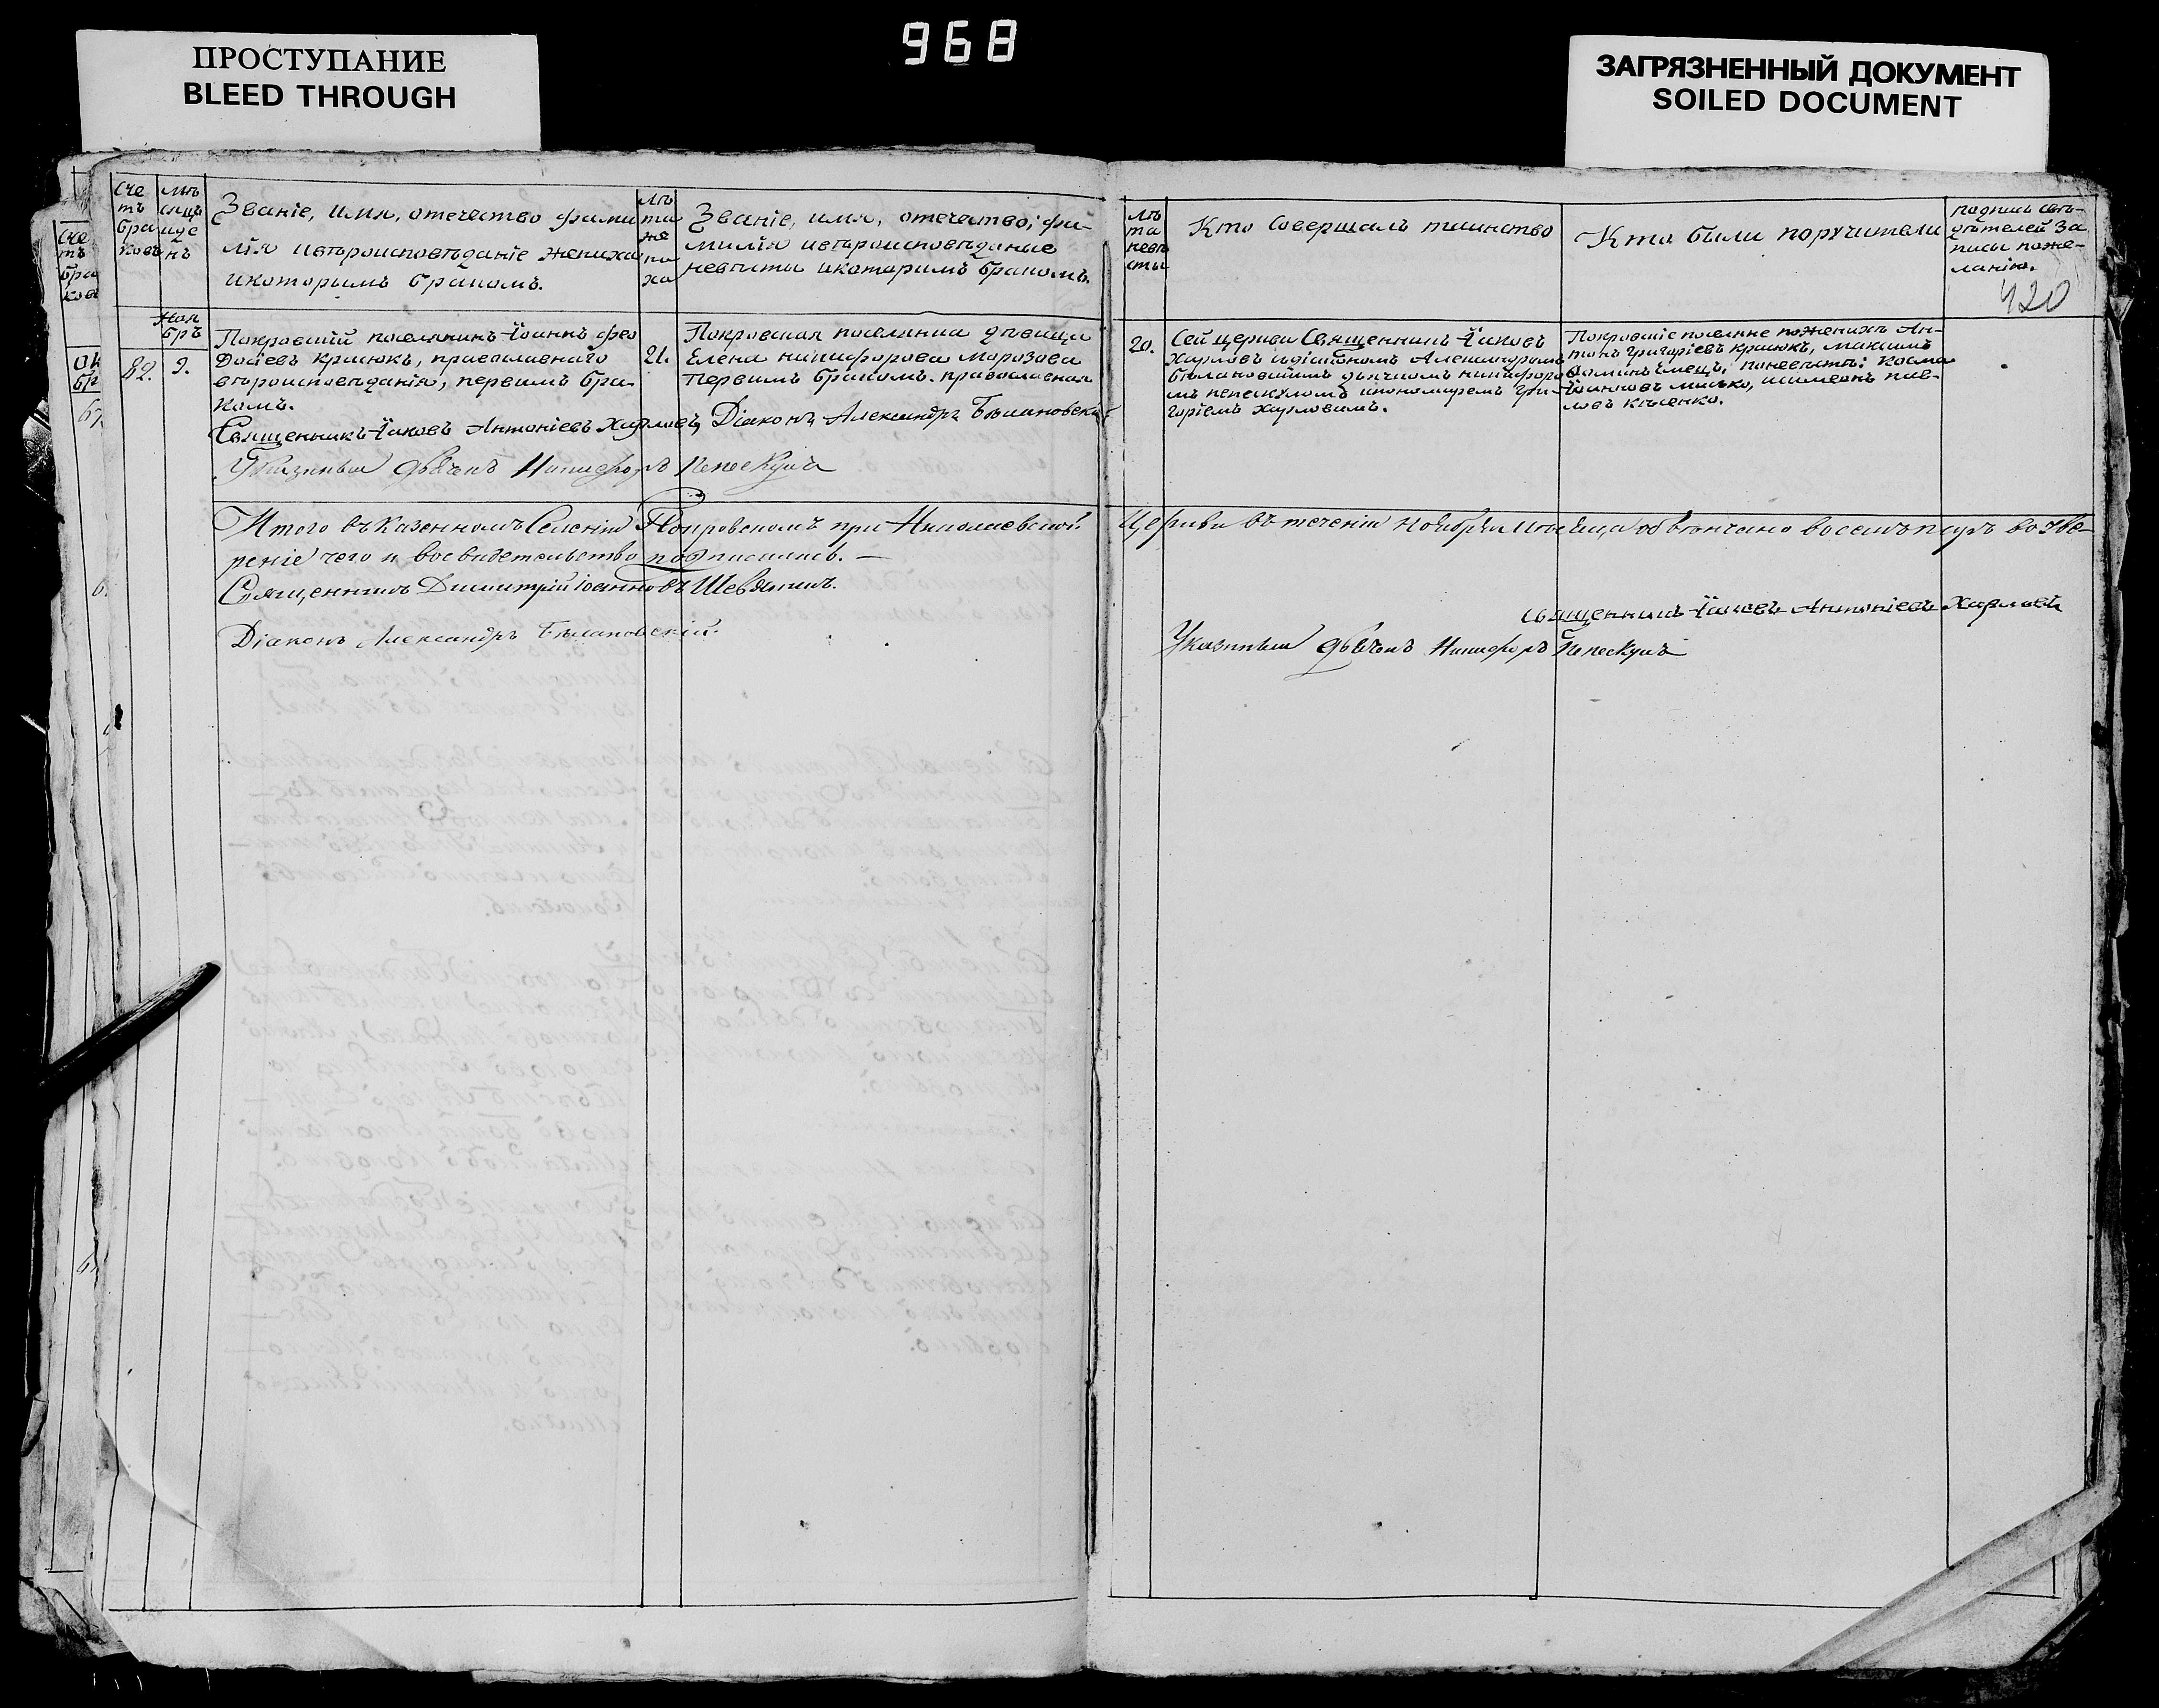 968
ПРОСТУПАНИЕ
BLEED THROUGH
ЗАГРЯЗНЕННЫЙ ДОКУМЕНТ
SOILED DOCUMENT
Сче
тъ
бра
ковъ
Мѣ
сяцъ
и де
нь
Званіе, имя, отечество фами
лія и вѣроисповѣданіе жениха
и которымъ бракомъ.
Лѣ
та
же
ни
ха
Званіе, имя, отечество, фа-
милія и вѣроисповѣданіе
невѣсты и которымъ бракомъ.
Лѣ
та
невѣ
сты
Кто совершалъ таинство
Кто были поручители
Подпись сви-
дѣтелей за
писи по же-
ланію.
420
Ноя
брь
82.
9.
Покровскій поселянинъ Іоаннъ Фео
досіевъ Крыюкъ, православнаго
вѣроисповѣданія, первымъ бра-
комъ.
21.
Покровская поселянка дѣвица
Елена Никифорова Морозова
первымъ бракомъ. православная
20.
Сей церкви Священникъ Іаковъ
Харловъ съ діакономъ Александромъ
Бѣлановскимъ дьячкомъ Никифоро
мъ Пепескуломъ и пономаремъ Гри-
горіемъ Харловымъ.
Покровскіе поселяне по женихѣ Ан-
тонъ Григоріевъ Крыюкъ, Максимъ
Фоминъ Емецъ, по невѣстѣ: Косма
Іоанновъ Мисько, и Симеонъ Пав-
ловъ
Священникъ Іаковъ Антоніевъ Харловъ, Діаконъ Александръ Бѣлановскій
Указный дьячекъ Никифоръ Пепескулъ
Итого въ казенномъ Селеніи Покровскомъ при Николаевской Церкви въ теченіи Ноября мѣсяца обвѣнчано восемь паръ во увѣ-
реніе чего и во свидетельство подписались. —
Священникъ Димитрій Іоанновъ
Священникъ Іаковъ Антоніевъ Харловъ
Діаконъ Александръ Бѣлановскій.
Указный дьячекъ Никифоръ Пепескулъ